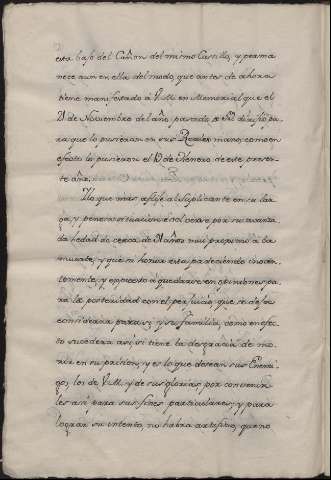 esta bajo del Cañon del mismo Castillo, y perma
nece aun en ella del modo, que antes de ahora
tiene manifestado á V.M. en Memorial que el
21 de Noviembre del año pasado su hijo pa
ra que lo pusieran en sus Reales manos, como en
efecto lo pusieron el de Henero de este presen-
te año.
Y lo que mas aflije al Suplicante en su lar
ga, y penosa situacion es el verse por su avanza
da hedad de cerca de años mui proximo a la
muerte, y que su honor esta padeciendo inocen
temente, y expuesto á quedarse en opiniones pa
ra la posteridad con el perjuicio, que se deja
considerar para si, y su familia, como en efec
to sucedera asi si tiene la desgracia de mo-
rir en su prision, y es lo que desean sus Enemi
gos, los de V.M. y de sus glorias, por convenir
les asi para sus fines particulares; y para
lograr su intento no habra artificio, que no